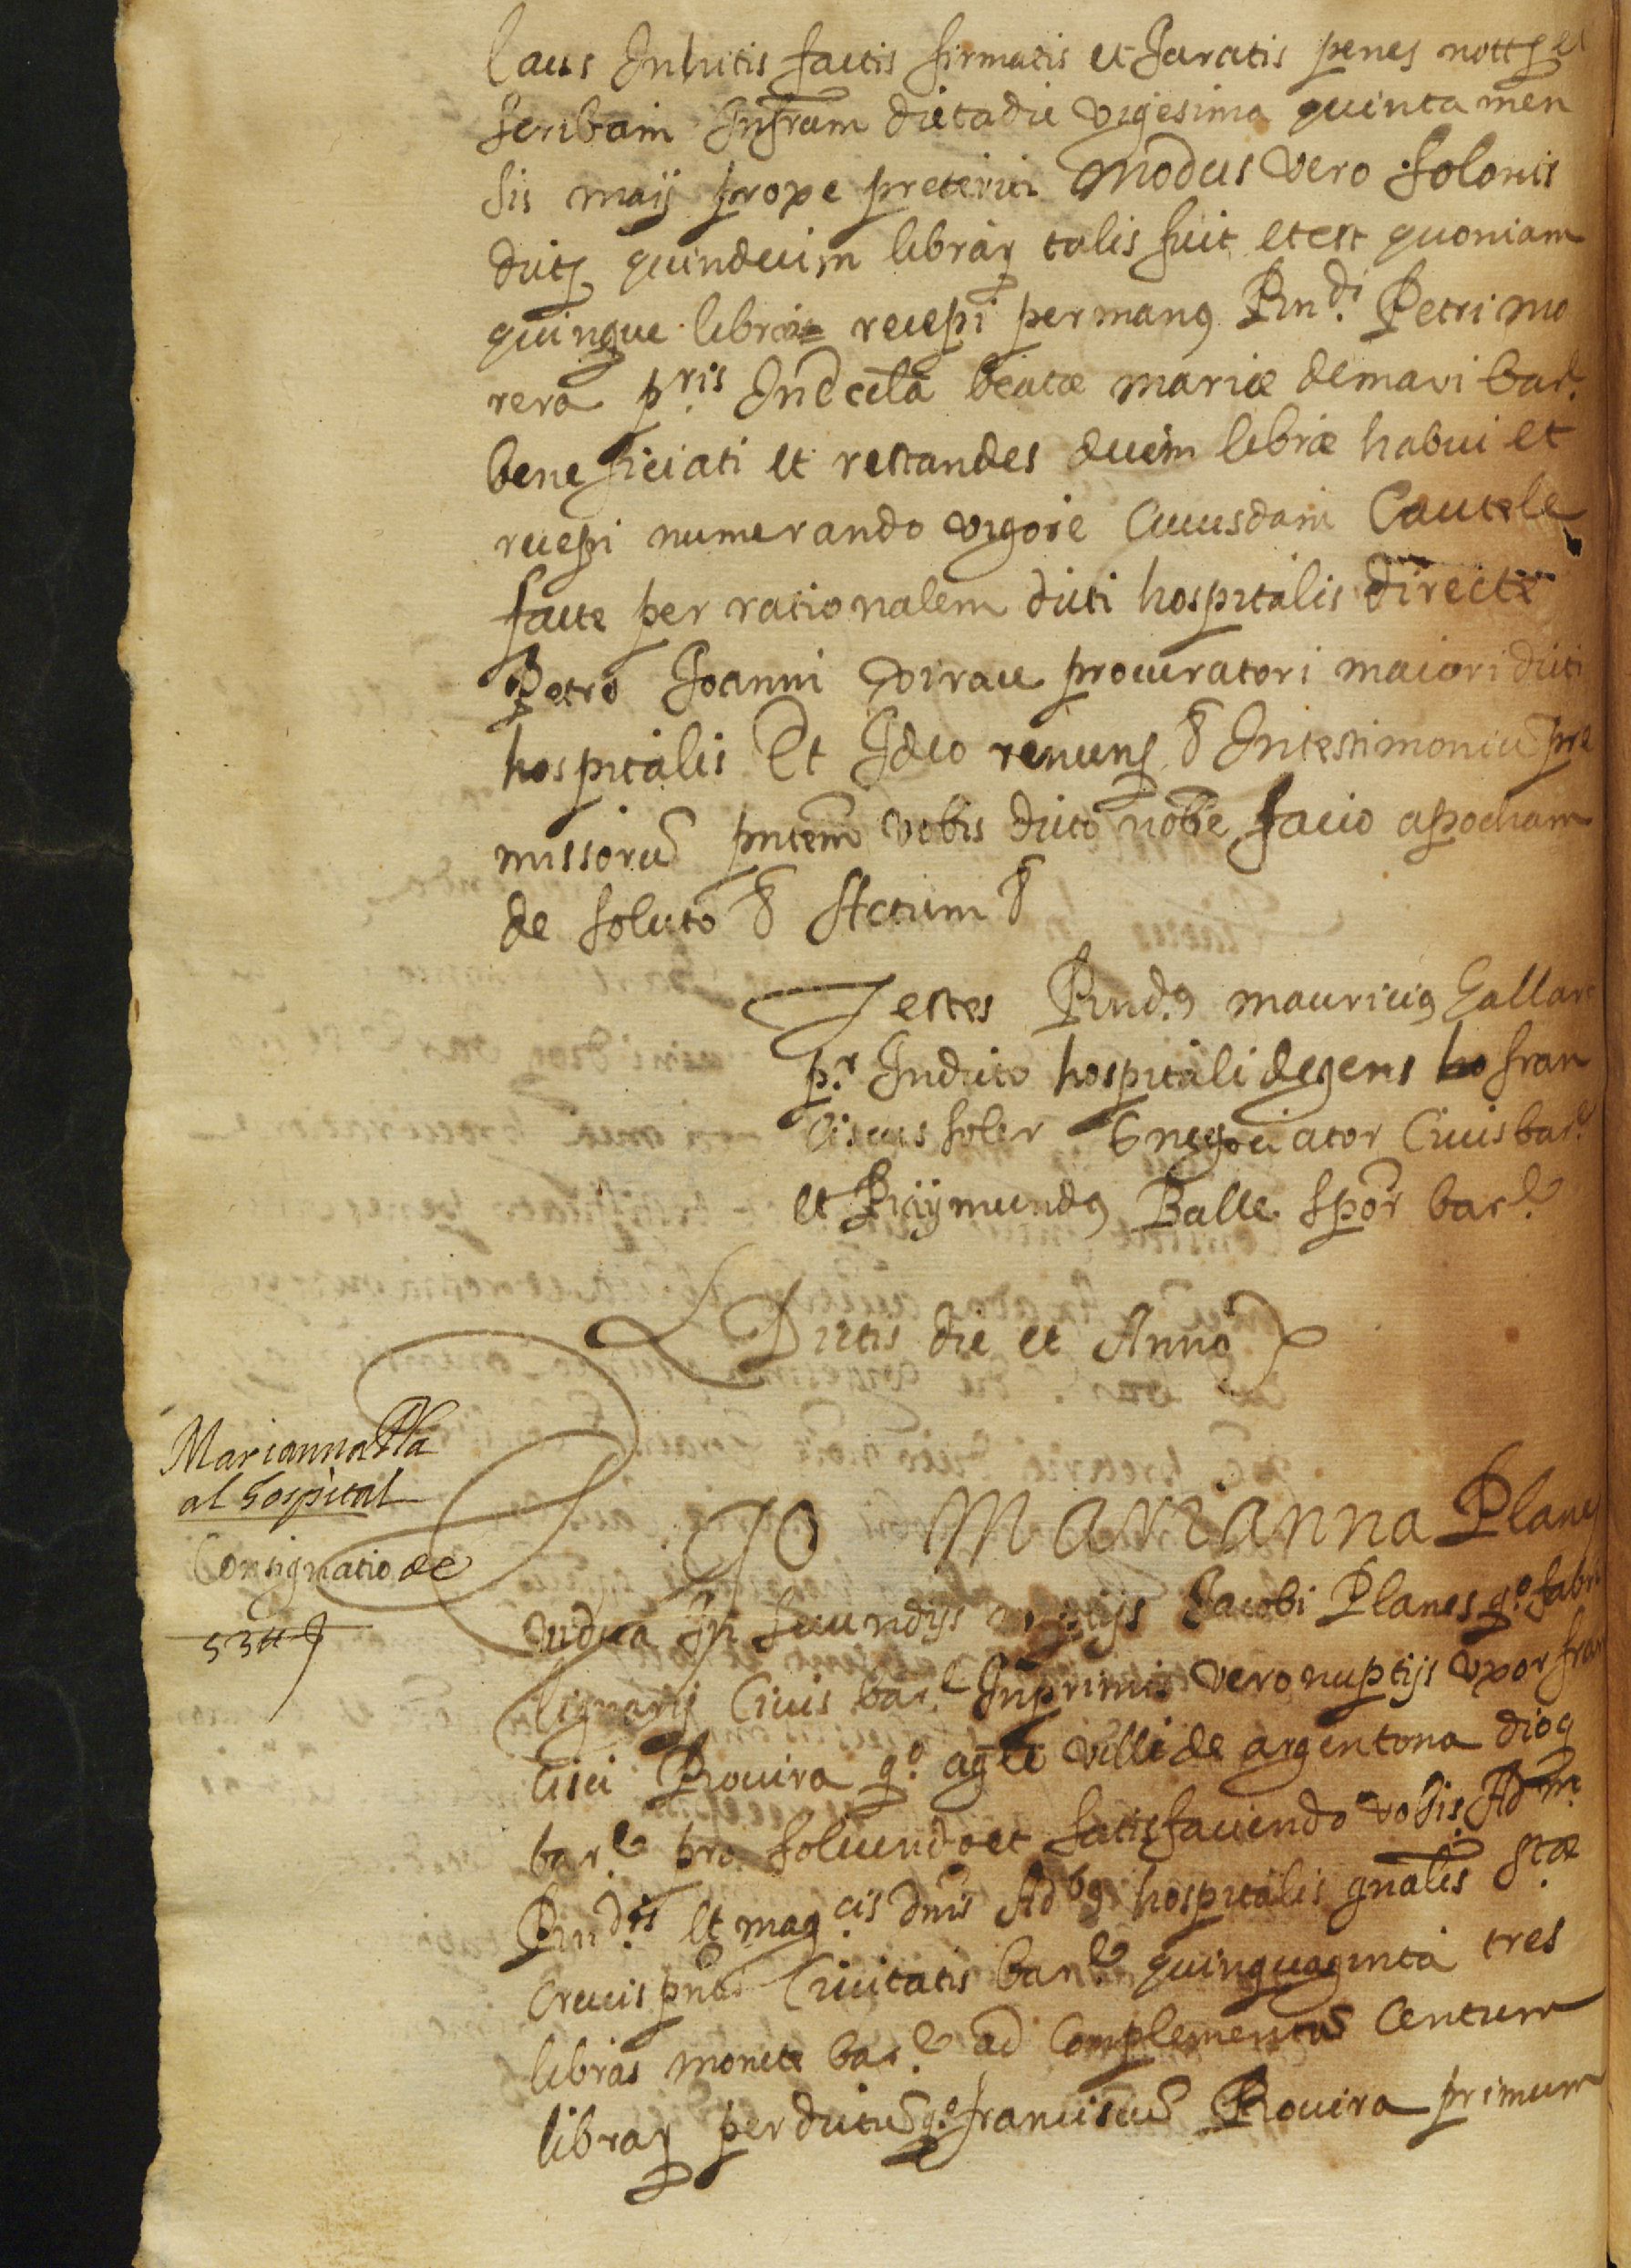 laus Inhitis factis firmatis et Juratis penes nottm et
scribam Infrum dicta die vigesima quinta men
sis maij prope preteriti Modus vero solonis
dictar quindecim librar talis fuit et est quoniam
quinque libras recepi per manus Rndi Petri mo
rera pris In eccla beatæ mariæ de mari barã
beneficiati et restandes decem libræ habui et
recepi numerando vigore Cuiusdam Cautele
facte per rationalem dicti hospitalis directe
Petro Joanni Virau procuratori maiori dicti
hospitalis Et Ideo renuns & In testimoniu pre
missorũ pntem vobis dicto nõbe facio apocham
de soluto & Actum &
Testes Rndus mauricius Gallart
pr. In dicto hospitali degens fran
ciscus soler negociator Civis barã
et Raymundus Balle spor barã
Dictis die et Anno
Marianna Pla
al Hospital
Consignatio de
53 ℔
Ego Marianna Planes
vidua In secundijs nuptijs Jacobi Planes qº fabri
lignarij Civis barã In primis vero nuptijs uxor fran
cisci Rovira qº agle ville de argentona diog
barã pro solvendo et satisfaciendo vobis Adm.
Rndis et magcis dnis Adbus hospitalis gnalis Stæ
Crucis pntis Civitatis barã quinquaginta tres
libras monete barã ad Complementũ Centum
librar per dictũ qº franciscũ Rovira primum